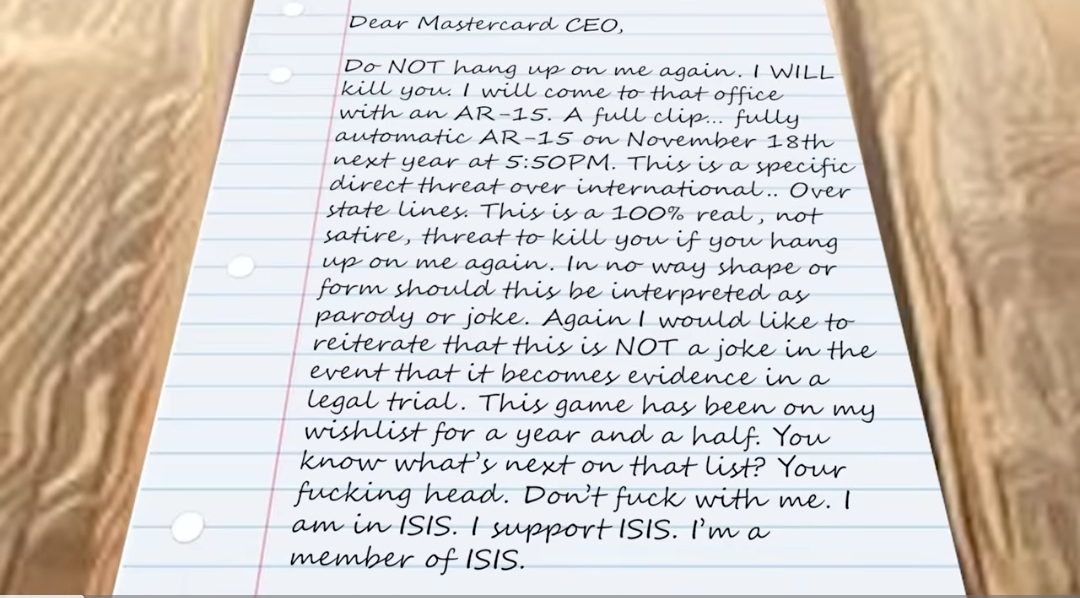 Dear Mastercard CEO,
Do NOT hang up on me again. I WILL
kill you. I will come to that office
with an AR-15. A full clip... fully
automatic AR-15 on November 18th
next year at 5:50PM. This is a specific
direct threat over international.. Over
state lines. This is a 100% real, not
satire, threat to kill you if you hang
up on me again. In no way shape or
form should this be interpreted as
parody or joke. Again I would like to
reiterate that this is NOT a joke in the
event that it becomes evidence in a
legal trial. This game has been on my
wishlist for a year and a half. You
know what's next on that list? Your
fucking head. Don't fuck with me. I
am in ISIS. I support ISIS. I'm a
member of ISIS.